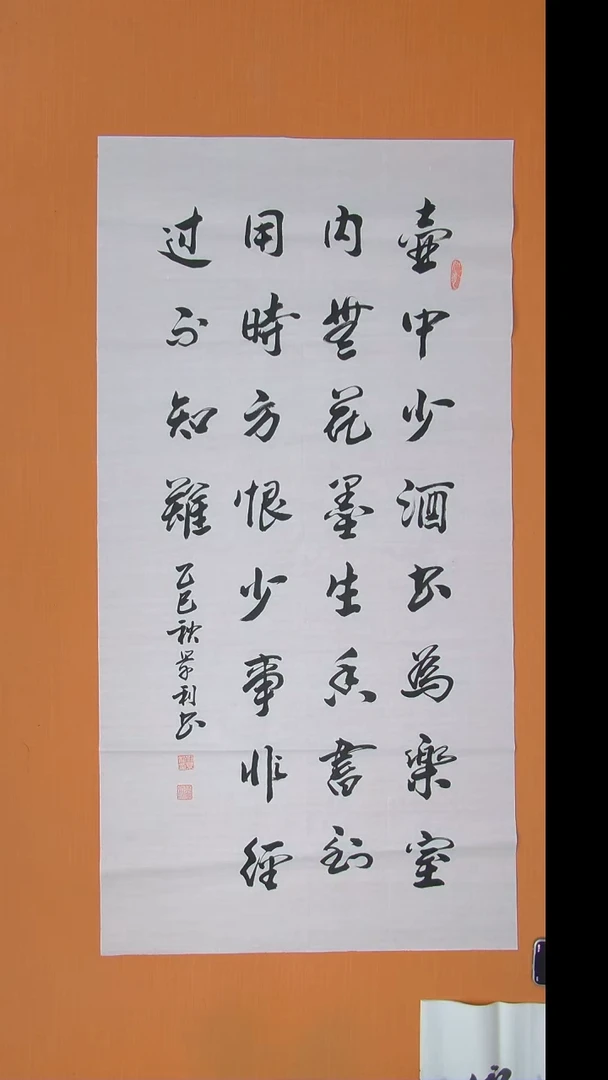 壺中少酒书為樂室
内無花墨生香書到
用時方恨少事非經
过不知難
乙巳秋景利书